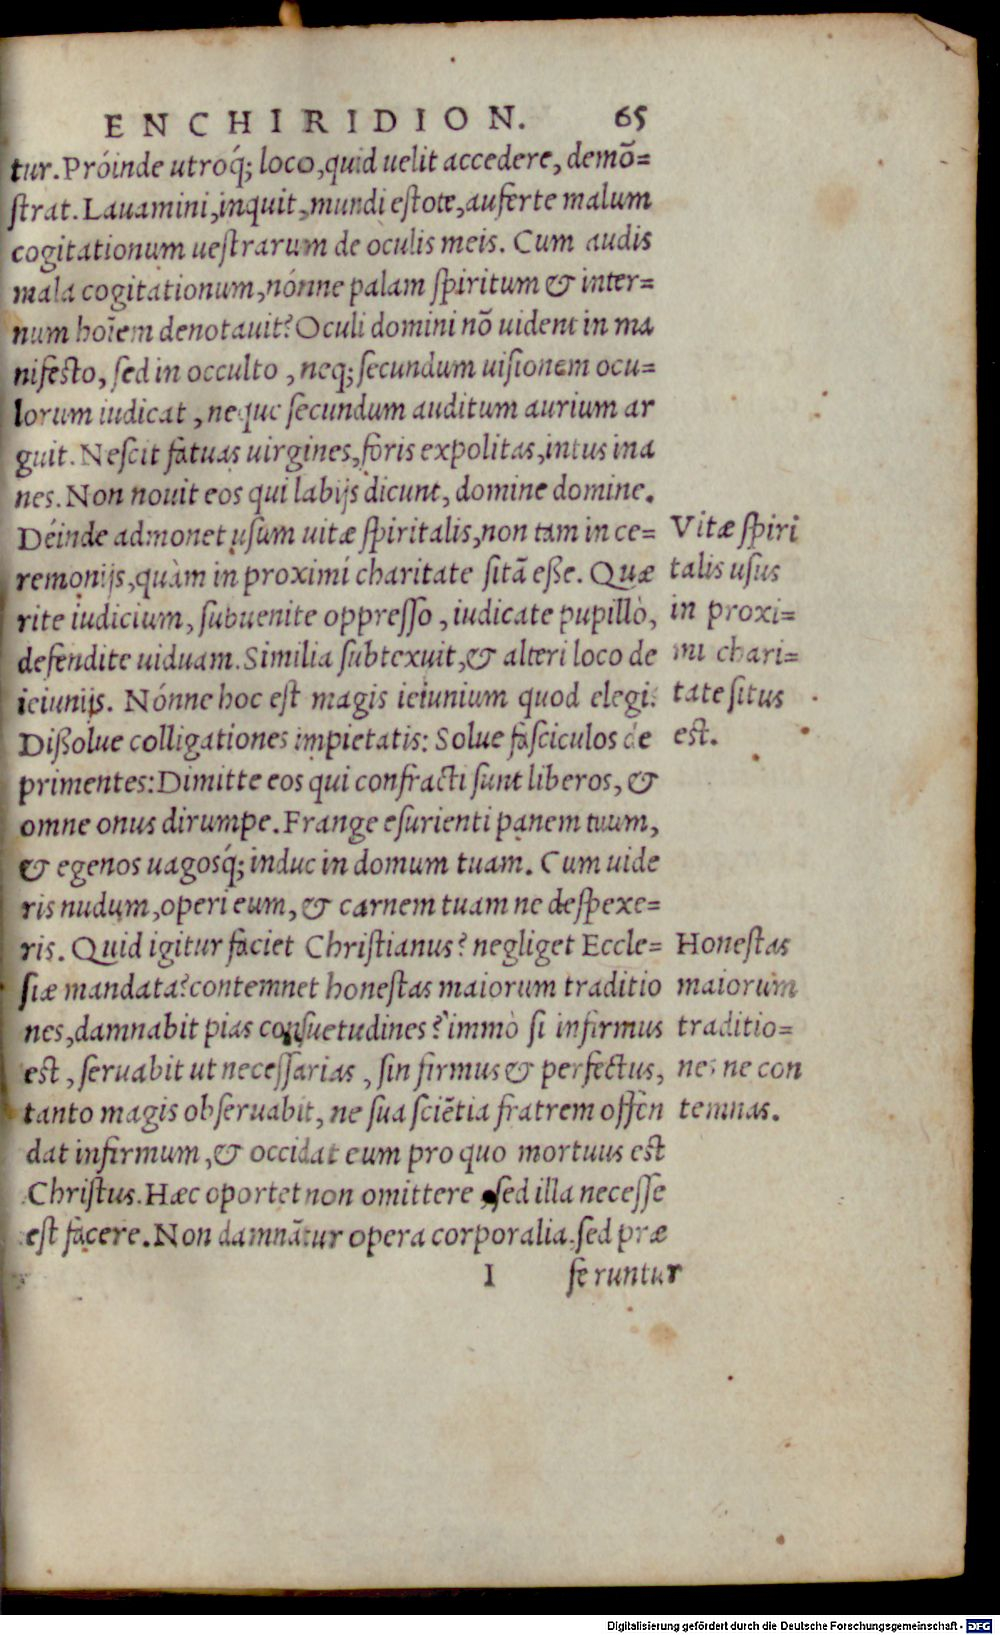 ENCHIRIDION. 65
tur. Próinde utroq́; loco, quid uelit accedere, demō=
ſtrat. Lauamini, inquit, mundi eſtote, auferte malum
cogitationum ueſtrarum de oculis meis. Cum audis
mala cogitationum, nónne palam ſpiritum & inter=
num hoīem denotauit? Oculi domini nō uident in ma
nifeſto, ſed in occulto, neq; ſecundum uiſionem ocu=
lorum iudicat, neque ſecundum auditum aurium ar
guit. Neſcit fatuas uirgines, foris expolitas, intus ina
nes. Non nouit eos qui labijs dicunt, domine domine.
Déinde admonet uſum uitæ ſpiritalis, non tam in ce=
remonijs, quàm in proximi charitate ſitā eße. Quæ
rite iudicium, ſubuenite oppreſſo, iudicate pupillo,
defendite uiduam. Similia ſubtexuit, & alteri loco de
ieiunijs. Nónne hoc eſt magis ieiunium quod elegi:
Dißolue colligationes impietatis: Solue faſciculos de
primentes: Dimitte eos qui confracti ſunt liberos, &
omne onus dirumpe. Frange eſurienti panem tuum,
& egenos uagosq́; induc in domum tuam. Cum uide
ris nudum, operi eum, & carnem tuam ne deſpexe=
ris. Quid igitur faciet Chriſtianus? negliget Eccle=
ſiæ mandata? contemnet honeſtas maiorum traditio
nes, damnabit pias conſuetudines? immò ſi infirmus
eſt, ſeruabit ut neceſſarias, ſin firmus & perfectus,
tanto magis obſeruabit, ne ſua ſciētia fratrem offen
dat infirmum, & occidat eum pro quo mortuus eſt
Chriſtus. Hæc oportet non omittere ſed illa neceſſe
eſt facere. Non damnātur opera corporalia. ſed præ
I feruntur
Vitæ ſpiri
talis uſus
in proxi=
mi chari=
tate ſitus
eſt.
Honeſtas
maiorum
traditio=
nes ne con
temnas.
Digitalisierung gefördert durch die Deutsche Forschungsgemeinschaft - DFG